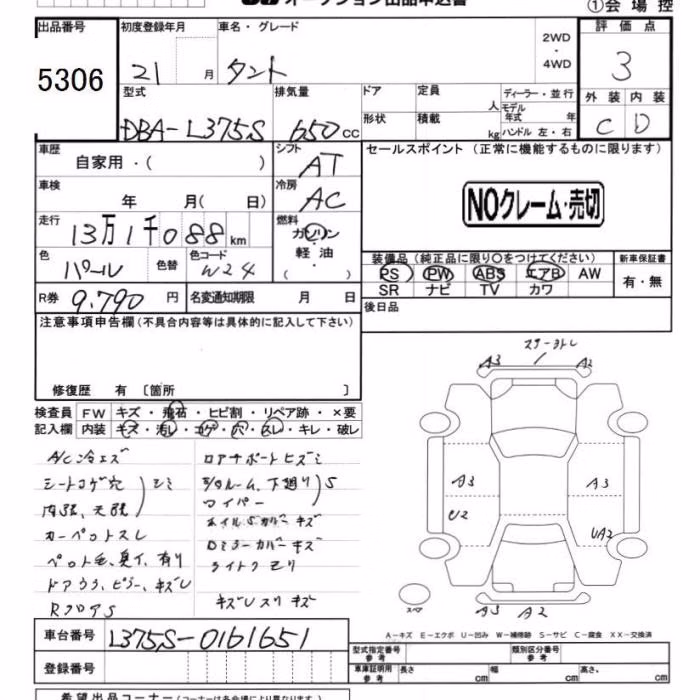 ①会場控
出品番号
5306
初度登録年月
21 月
車名・グレード
タント
2WD
・
4WD
評価点
3
型式
DBA-L375S
排気量
650cc
ドア
定員
人
ディーラー・並行
モデル
年式 年
形状
積載
kg
ハンドル 左・右
外装 内装
C D
車歴
自家用・( )
シフト
AT
セールスポイント (正常に機能するものに限ります)
NOクレーム・売切
車検
年 月( 日)
冷房
AC
走行
13万1千088km
燃料
ガソリン
・
軽油
・
( )
色
パール
色替
色コード
W24
装備品 (純正品に限り○をつけてください)
PS PW ABS エアB AW
SR ナビ TV カワ
新車保証書
有・無
R券 9,790 円
名変通知期限 月 日
後日品
注意事項申告欄 (不具合内容等は具体的に記入して下さい)
修復歴 有 〔箇所 〕
検査員
記入欄
FW キズ・飛石・ヒビ割・リペア跡・×要
内装 キズ・汚レ・コゲ・穴・スレ・キレ・破レ
A/C冷エズ
シートコゲ穴
シミ
内張、天張
カーペットスレ
ペット毛、臭イ、有り
ドアウラ、ピラー、キズ
RフロアS
コアサポートヒズミ
下廻り S
ワイパー
ホイルSカバーキズ
Dミラーカバーキズ
ライトクモリ
キズ
A3
A2
A3
U2
A3
UA2
スペア
A3 A2
A-キズ E-エクボ U-凹み W-補修跡 S-サビ C-腐食 XX-交換済
車台番号
L375S-0161651
登録番号
型式指定番号
参考
類別区分番号
参考
車庫証明用
参考
長さ cm
幅 cm
高さ、 cm
希望出品コーナー